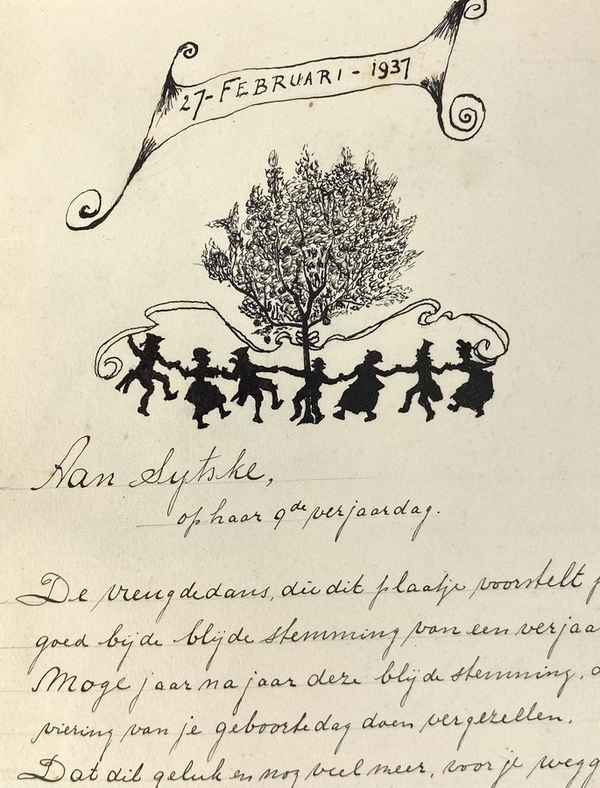 27-FEBRUARI-1937
Aan Sytske,
op haar 9de verjaardag.
De vreugdedans, die dit plaatje voorstelt p
goed bij de blijde stemming van een verjaa
Moge jaar na jaar deze blijde stemming, d
viering van je geboortedag doen vergezellen.
Dat dit geluk en nog veel meer, voor je wegg